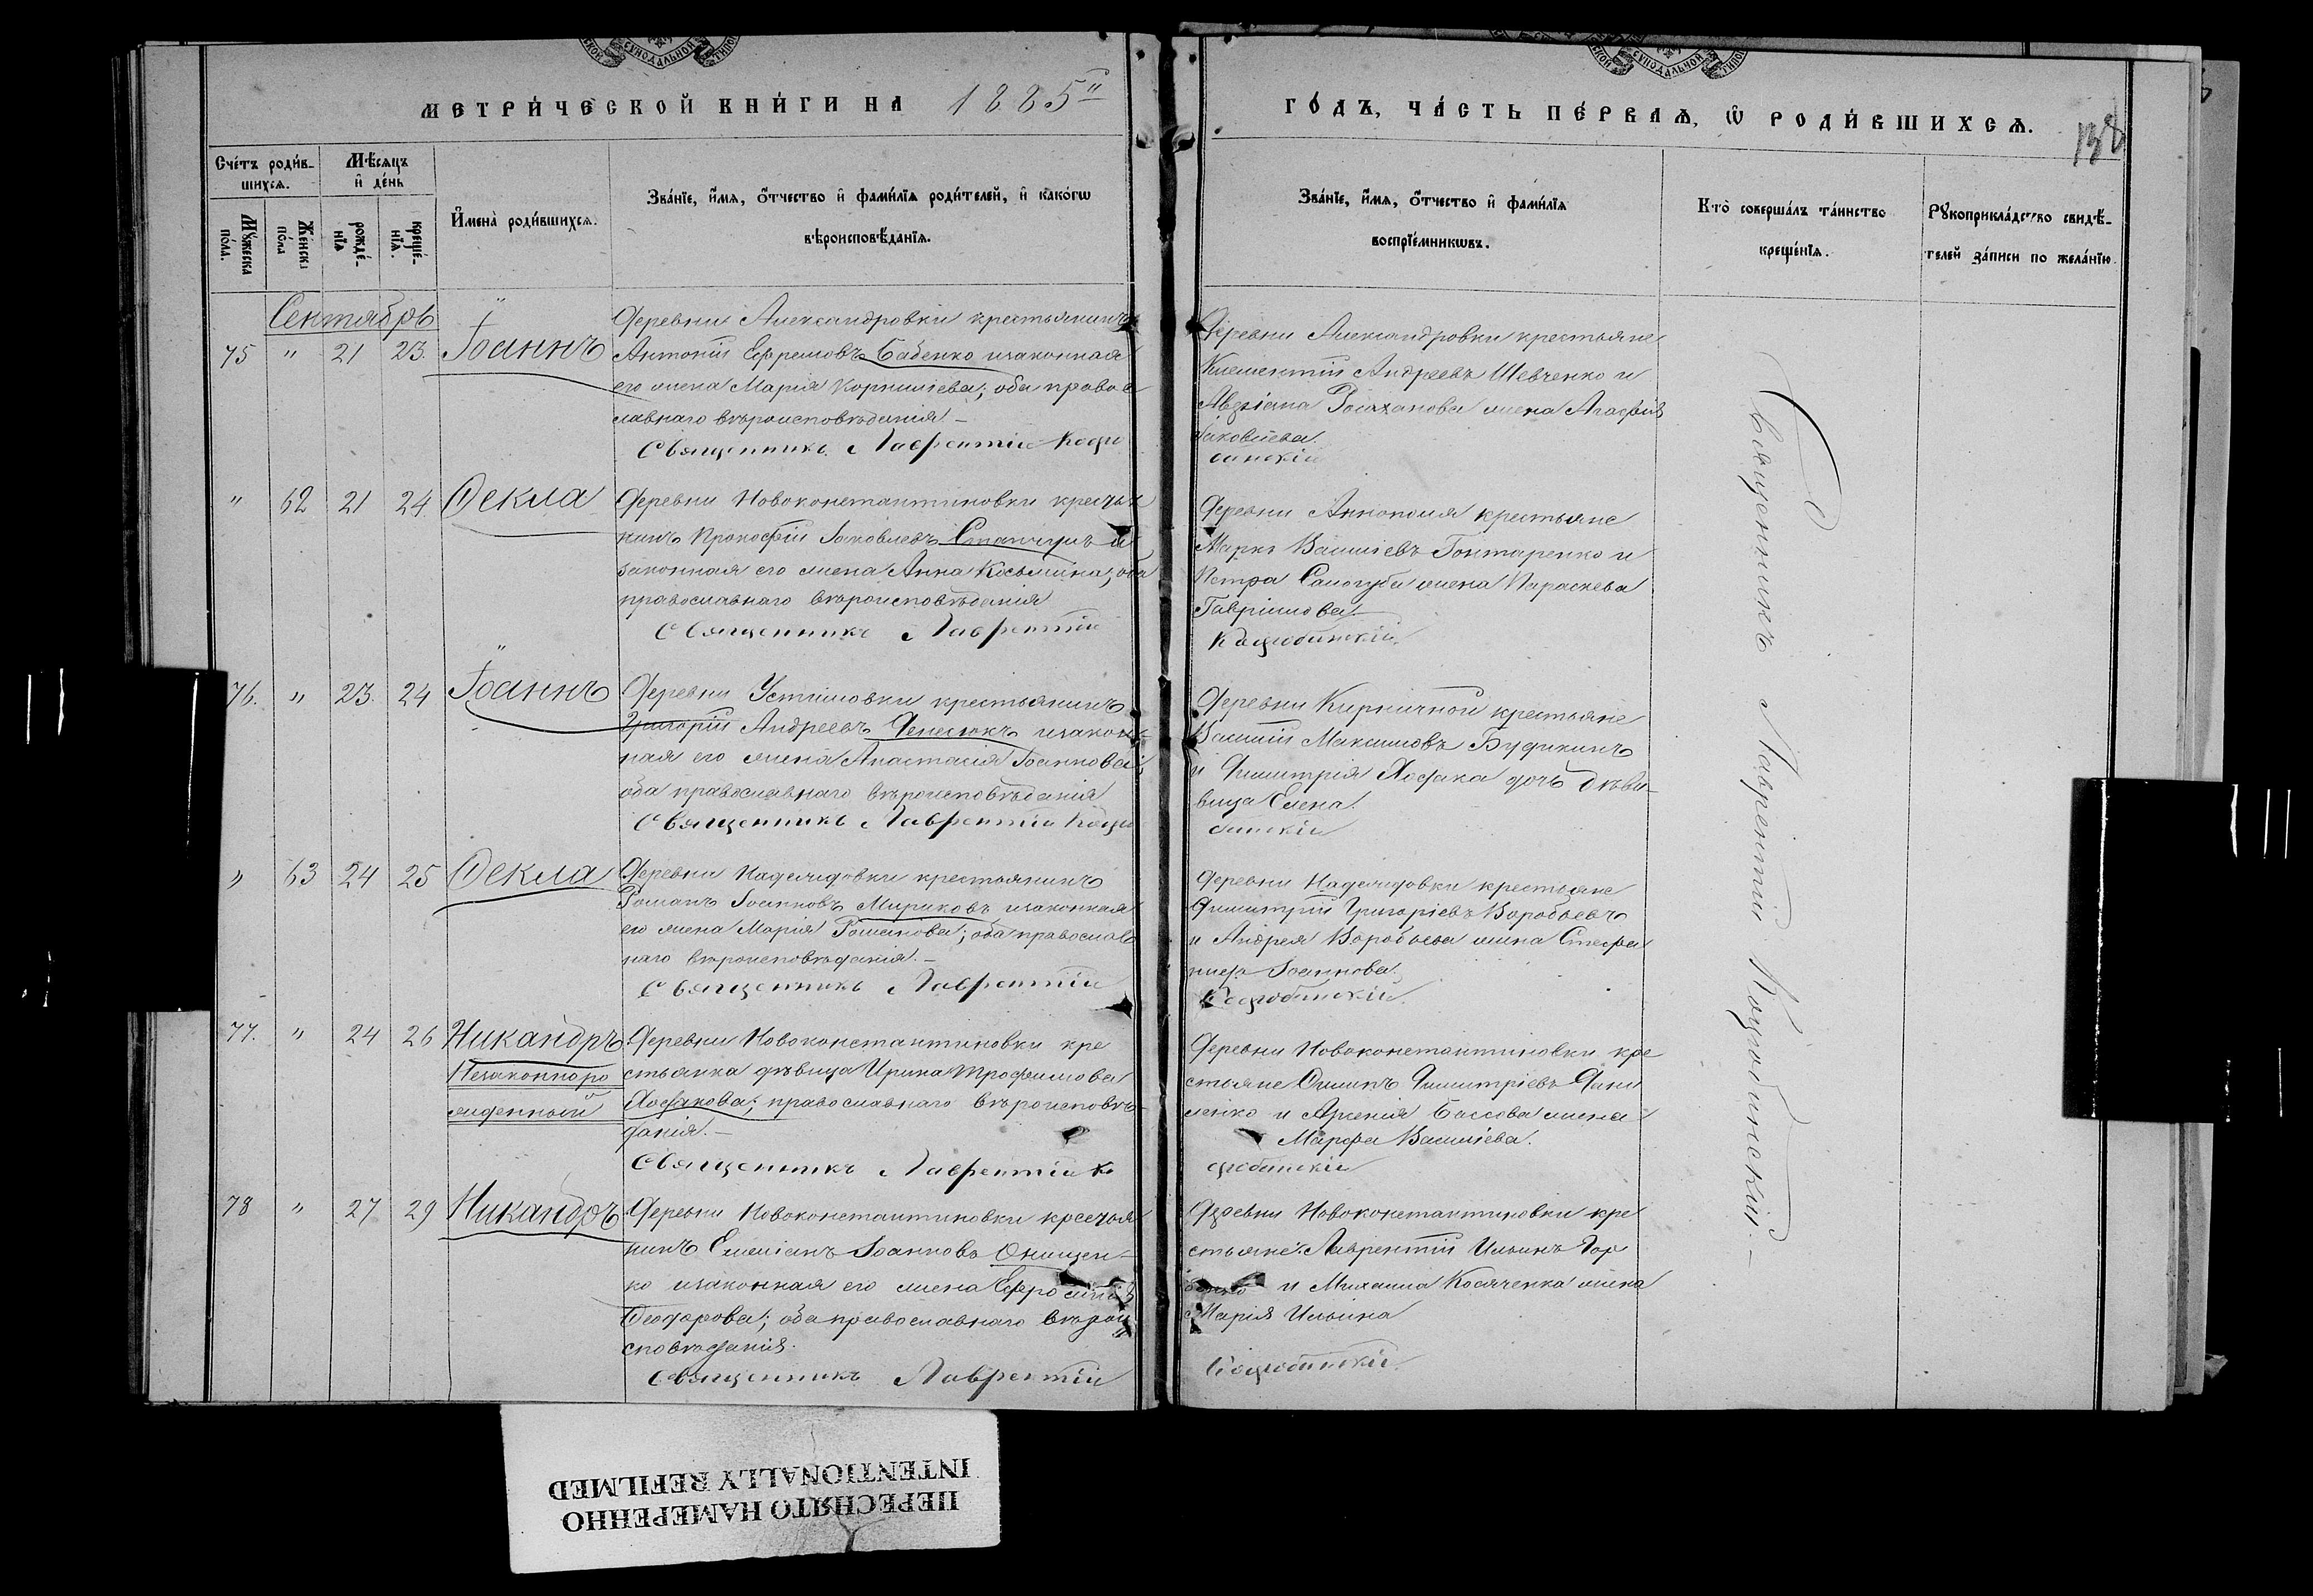 МЕТРИ́ЧЕСКОЙ КНИ́ГИ НА 1885й
ГО́ДЪ, ЧА́СТЬ ПЕ́РВАѦ, Ѡ РОДИ́ВШИХСѦ.
138
Сче́тъ роди́в-
шихсѧ.
Мѣ́сѧцъ
и҆ де́нь
Мꙋ́жеска
по́ла.
Же́нска
по́ла
рожде́-
нїѧ
креще́-
нїѧ.
И҆мена̀ роди́вшихсѧ.
Зва́нїе, и҆́мѧ, ѻ҆́тчество и҆ фами́лїѧ роди́телей, и҆ како́гѡ
вѣроисповѣ́данїѧ.
Зва́нїе, и҆́мѧ, ѻ҆́тчество и҆ фами́лїѧ
воспрїе́мникѡвъ.
Кто̀ соверша́лъ та́инство
креще́нїѧ.
Рꙋкоприкла́дство свидѣ́-
телей за́писи по жела́нїю.
Сентябрь
75 " 21 23. Іоаннъ
Деревни Александровки крестьянинъ
Антоній Ефремовъ Бабенко изаконная
его жена Марія Корниліева; оба право
славнаго вѣроисповѣданія. –
Священникъ Лаврентій Коцю
Деревни Александровки крестьяне
Климентій Андреевъ Шевченко и
жена Агафія
Іаковлева.
бинскій
" 62 21 24. Ѳекла
Деревни Новоконстантиновки крестья
нинъ Прокофій Іаковлевъ и
законная его жена Анна Косьмина; оба
православнаго вѣроисповѣданія
Священникъ Лаврентій
Деревни Аннополя крестьяне
Маркъ Василіевъ Гонтаренко и
Петра Самогуба жена Параскева
Гавріилова.
Коцюбинскій.
76. " 23. 24 Іоаннъ
Деревни Устимовки крестьянинъ
Григорій Андреевъ изакон-
ная его жена Анастасія Іоаннова;
оба православнаго вѣроисповѣданія
Священникъ Лаврентій Коцю
Деревни Кирпичной крестьяне
Василій Максимовъ
и Димитрія Ходака дочь дѣви-
вица Елена.
бинскій
" 63 24 25 Ѳекла
Деревни Надеждовки крестьянинъ
Романъ Іоанновъ Мириковъ изаконная
его жена Марія Романова; оба православ
наго вѣроисповѣданія. –
Священникъ Лаврентій
Деревни Надеждовки крестьяне
Димитрій Григоріевъ Воробьевъ
и Андрея Воробьева жена Стефа
нида Іоаннова.
Коцюбинскій.
77. " 24 26 Никандръ
Незаконноро
жденный
Деревни Новоконстантиновки кре
стьянка дѣвица Ирина Трофимова
Ходакова; православнаго вѣроисповѣ-
данія. –
Священникъ Лаврентій Ко
Деревни Новоконстантиновки кре
стьяне Димитріевъ Дани
ленко и Арсенія Бассова жена
Марфа Василіева.
цюбинскій
78 " 27 29 Никандръ
Деревни Новоконстантиновки крестья
нинъ Емеліанъ Іоанновъ Онищен-
ко изаконная его жена Ефросинія
Ѳеодорова; оба православнаго вѣрои
сповѣданія.
Священникъ Лаврентій
Деревни Новоконстантиновки кре
стьяне: Лаврентій Ильинъ Гор
и Михаила Косяченка жена
Марія Ильина
Коцюбинскій.
Священникъ Лаврентій Коцюбинскій. –
ПЕРЕСНЯТО НАМЕРЕННО
INTENTIONALLY REFILMED